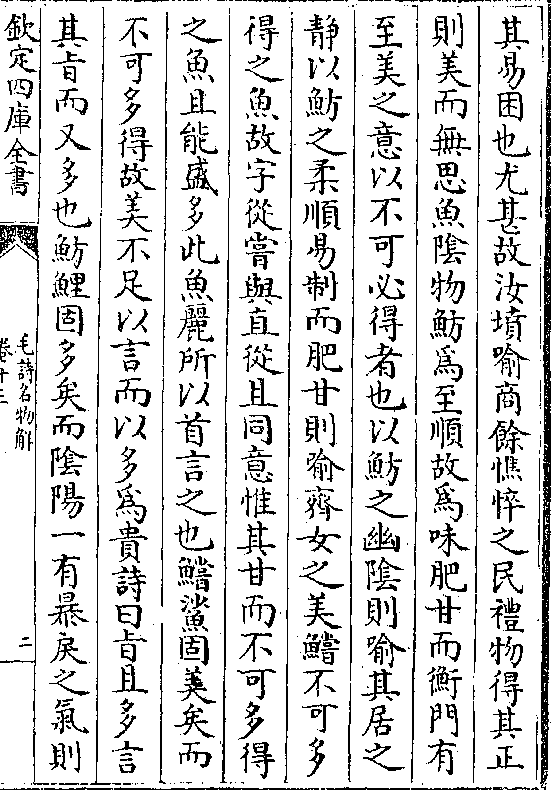 其易困也尤甚故汝墳喻商餘憔悴之民禮物得其正
則美而無思魚陰物魴為至順故為味肥甘而衡門有
至美之意以不可必得者也以魴之幽陰則喻其居之
静以魴之柔順易制而肥甘則喻齊女之美鱨不可多
得之魚故字從嘗與直從且同意惟其甘而不可多得
之魚且能盛多此魚麗所以首言之也鱨鯊固美矣而
不可多得故美不足以言而以多為貴詩曰旨且多言
其旨而又多也魴鯉固多矣而陰陽一有㬥戾之氣則
欽定四庫全書
毛詩名物解
卷十三
二